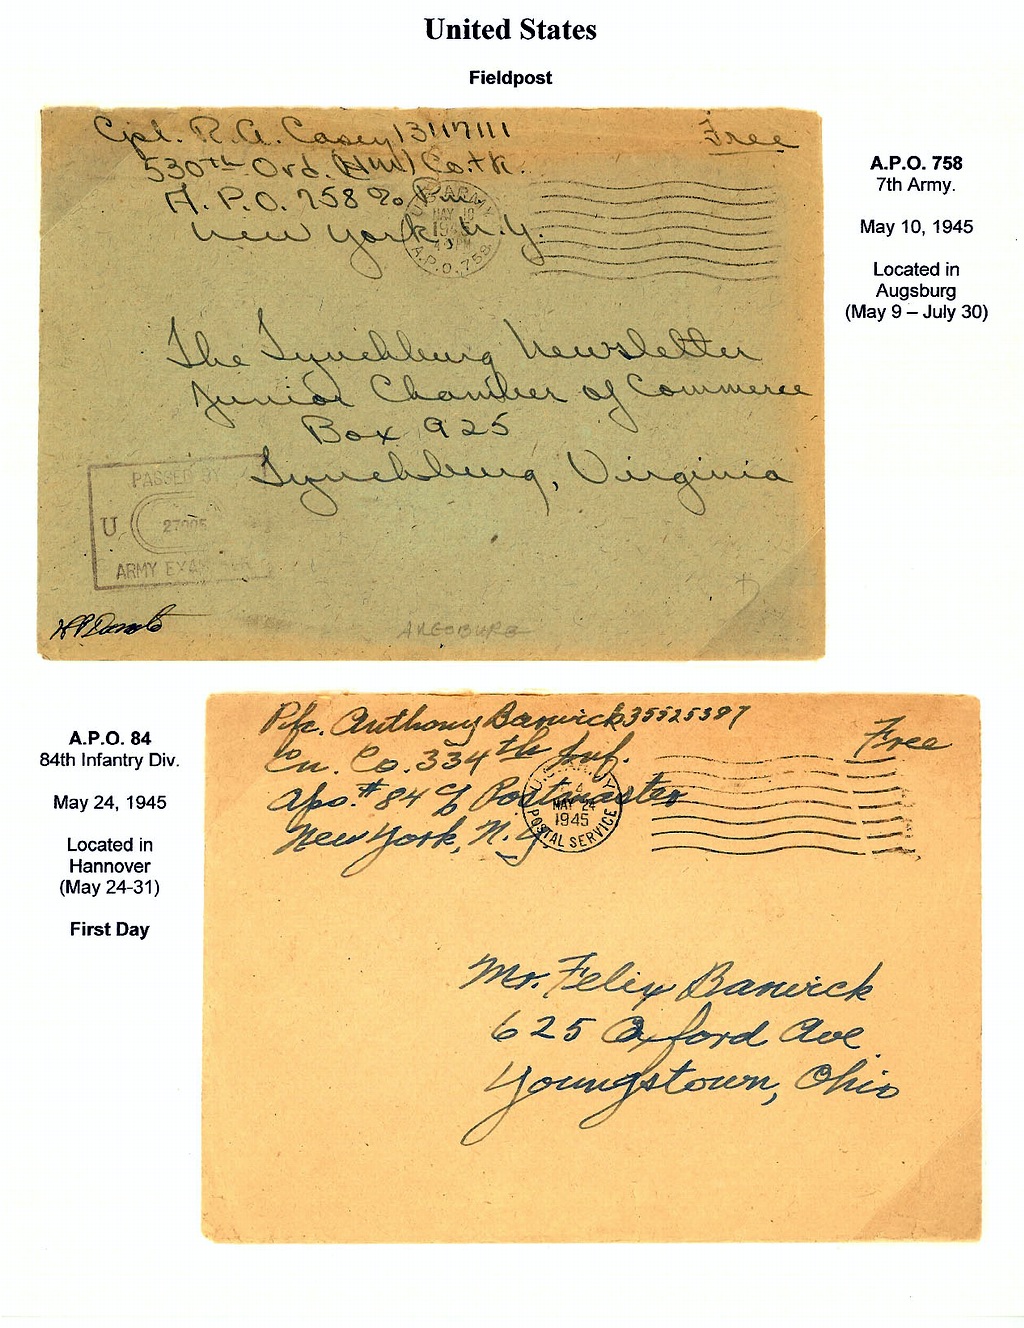 United States
Fieldpost
Cpl. R. A. Casey 13117111
Free
530th Ord. (HM) Co. TK.
A. P. O. 758 %
New York, N. Y.
U.S. ARMY
MAY 10
1945
PM
A.P.O. 758
A.P.O. 758
7th Army.
May 10, 1945
Located in
Augsburg
(May 9 – July 30)
The Lynchburg Newsletter
Junior Chamber of Commerce
Box 925
Lynchburg, Virginia
PASSED BY
U
ARMY EXA
A.P.O. 84
84th Infantry Div.
May 24, 1945
Located in
Hannover
(May 24-31)
First Day
Pfc. Anthony Banwick 35525387
Free
Cn. Co. 334th Inf.
Apo. # 84 c/o Postmaster
New York, N. Y.
U.S. ARMY
MAY 24
1945
POSTAL SERVICE
Mr. Felix Banwick
625 Oxford Ave
Youngstown, Ohio